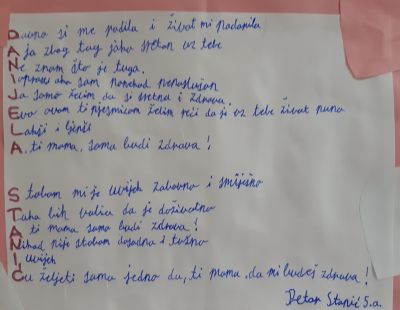 Davno si me rodila i život mi podarila
A ja zbog tog jako sretan uz tebe
Ne znam što je tuga.
I oprosti ako sam ponekad neposlušan
Ja samo želim da si sretna i zdrava.
Evo ovom ti pjesmicom želim reći da je uz tebe život puno
Lakši i ljepši
A, ti mama, samo budi zdrava!
S tobom mi je uvijek zabavno i smiješno
Tako bih volio da je doživotno
A ti mama samo budi zdrava!
Nikad nije s tobom dosadno i tužno
I uvijek
Ću željeti samo jedno da, ti mama, da mi budeš zdrava!
Petar Stanić 5.a.